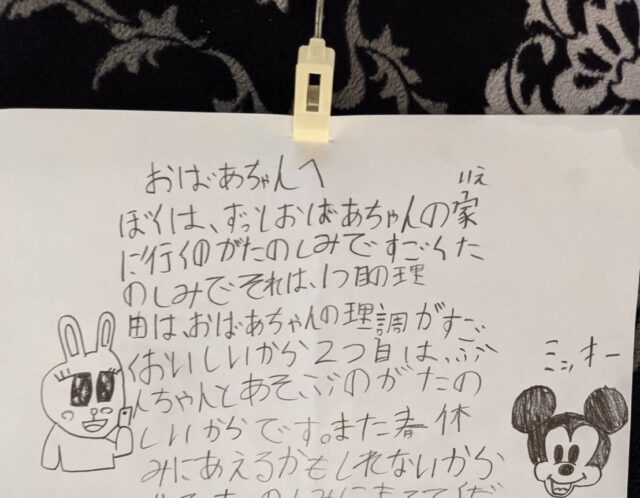 おばあちゃんへ
いえ
ぼくは、ずっとおばあちゃんの家
に行くのがたのしみですごくた
のしみでそれは、1つ目の理
由は、おばあちゃんの理調がすご
くおいしいから2つ目は、ぶ
んちゃんとあそぶのがたの
しいからです。また春休
みにあえるかもしれないから
ミッキー